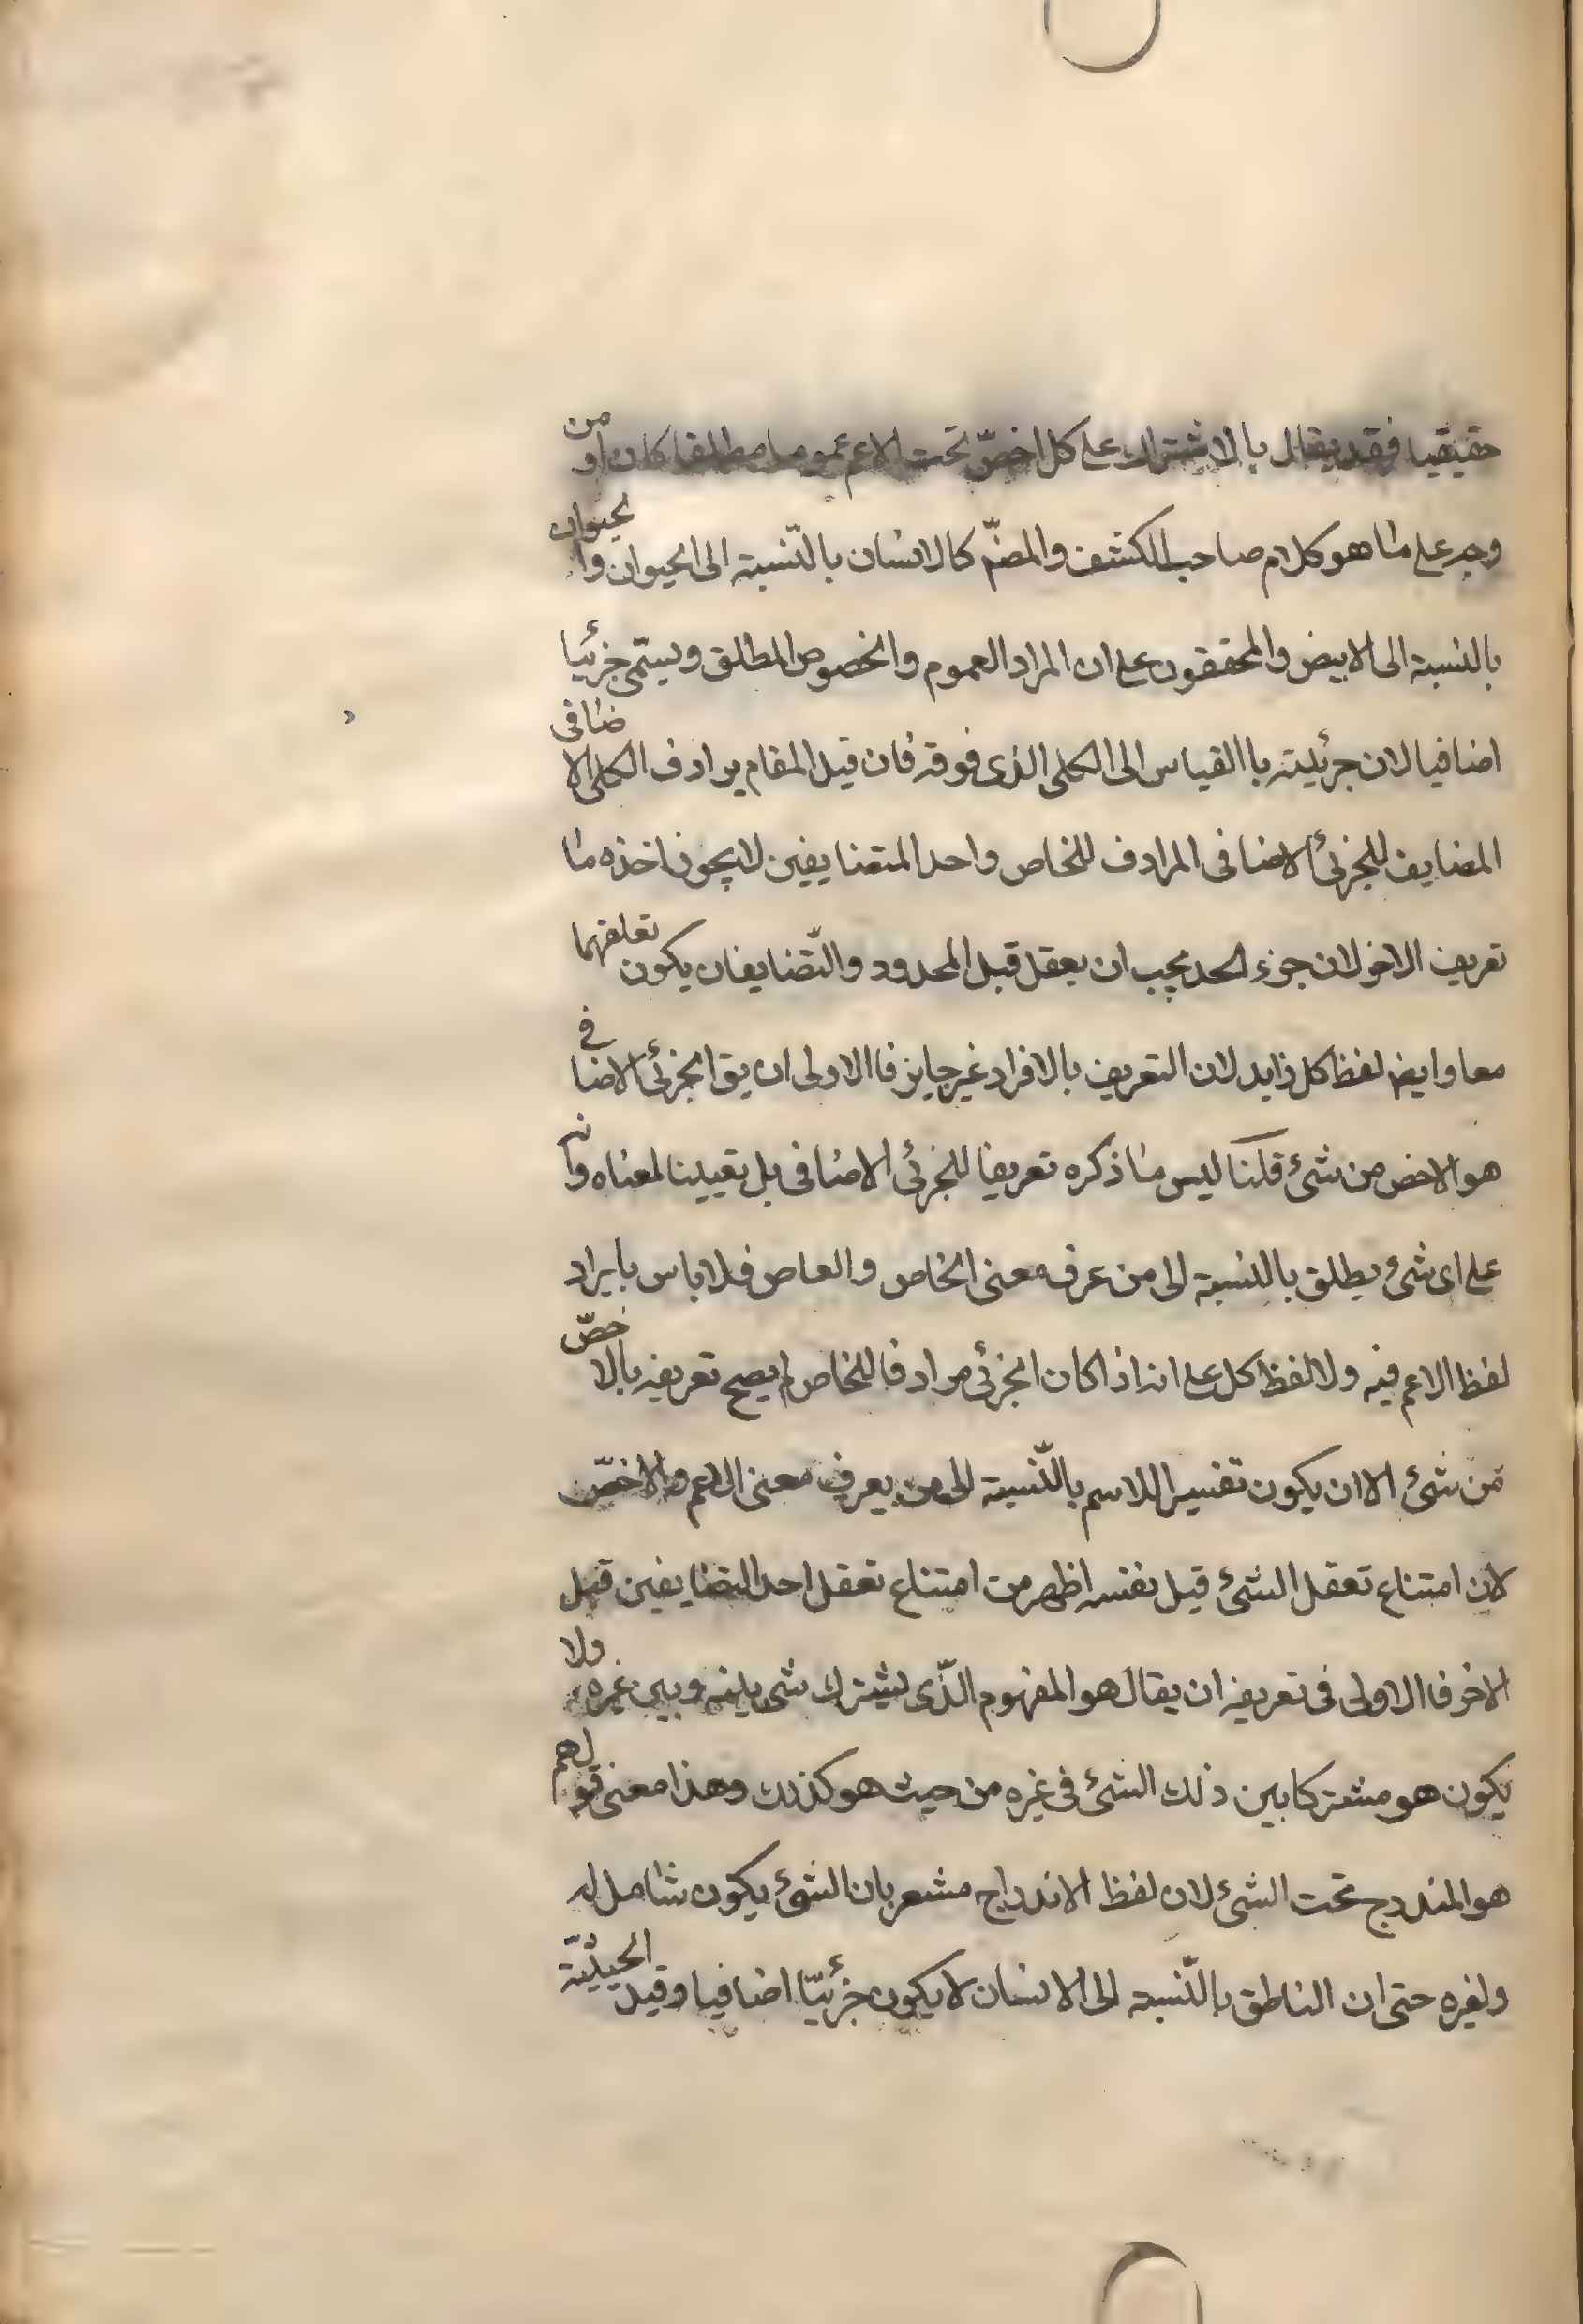 حقيقيا فقد يقال بالاشتراك على كل اخصّ تحت الاعم عموما مطلقا كان او من
وجه على ما هو كلام صاحب الكشف والمصنّم كالانسان بالنّسبة الى الحيوان والحيوان
بالنسبة الى الابيض والمحققون على ان المراد العموم والخصوص المطلق ويسمّى جزئيا
اضافيا لان جزئيته باالقياس الى الكلى الذى فوقه فان قيل المقام يرادف الكلى الاضافى
المضايف للجزئى الاضافى المرادف للخاص واحد المتضايفين لا يجوز اخذه ما
تعريف الاخر لان جزء الحد يجب ان يعقل قبل المحدود والتّضايفان يكون تعلقهما
معا وايضم لفظ كل زايد لان التعريف بالافراد غير جايز فاالاولى ان يق الجزئى الاضافي
هو الاخص من شئ قلنا ليس ما ذكره تعريفا للجزئى الاضافى بل تعيينا لمعناه وانه
على اى شئ يطلق بالنسبة الى من عرف معنى الخاص والعاص فلا باس بايراد
لفظ الاعم فيه ولا لفظ كل على انه اذا كان الجزئى مرادفا للخاص لم يصح تعريفه بالاخصّ
من شئ الا ان يكون تفسيرا للاسم بالنّسبة الى من يعرف معنى الاعم والاخصّ
لان امتناع تعقل الشئ قبل نفسه اظهر من امتناع تعقل احد التضايفين قبل
الاخر فاالاولى فى تعريفه ان يقال هو المفهوم الذّى يشترك شى بينه وبين غيره ولا
يكون هو مشتركا بين ذلك الشئ فى غيره من حيث هو كذلك وهذا معنى قولهم
هو المندرج تحت الشئ لان لفظ الاندراج مشعر بان الشئ يكون شامل له
ولغيره حتى ان الناطق بالنّسبة الى الانسان لا يكون جزئيّا اضافيا وقيد الحيثيّة